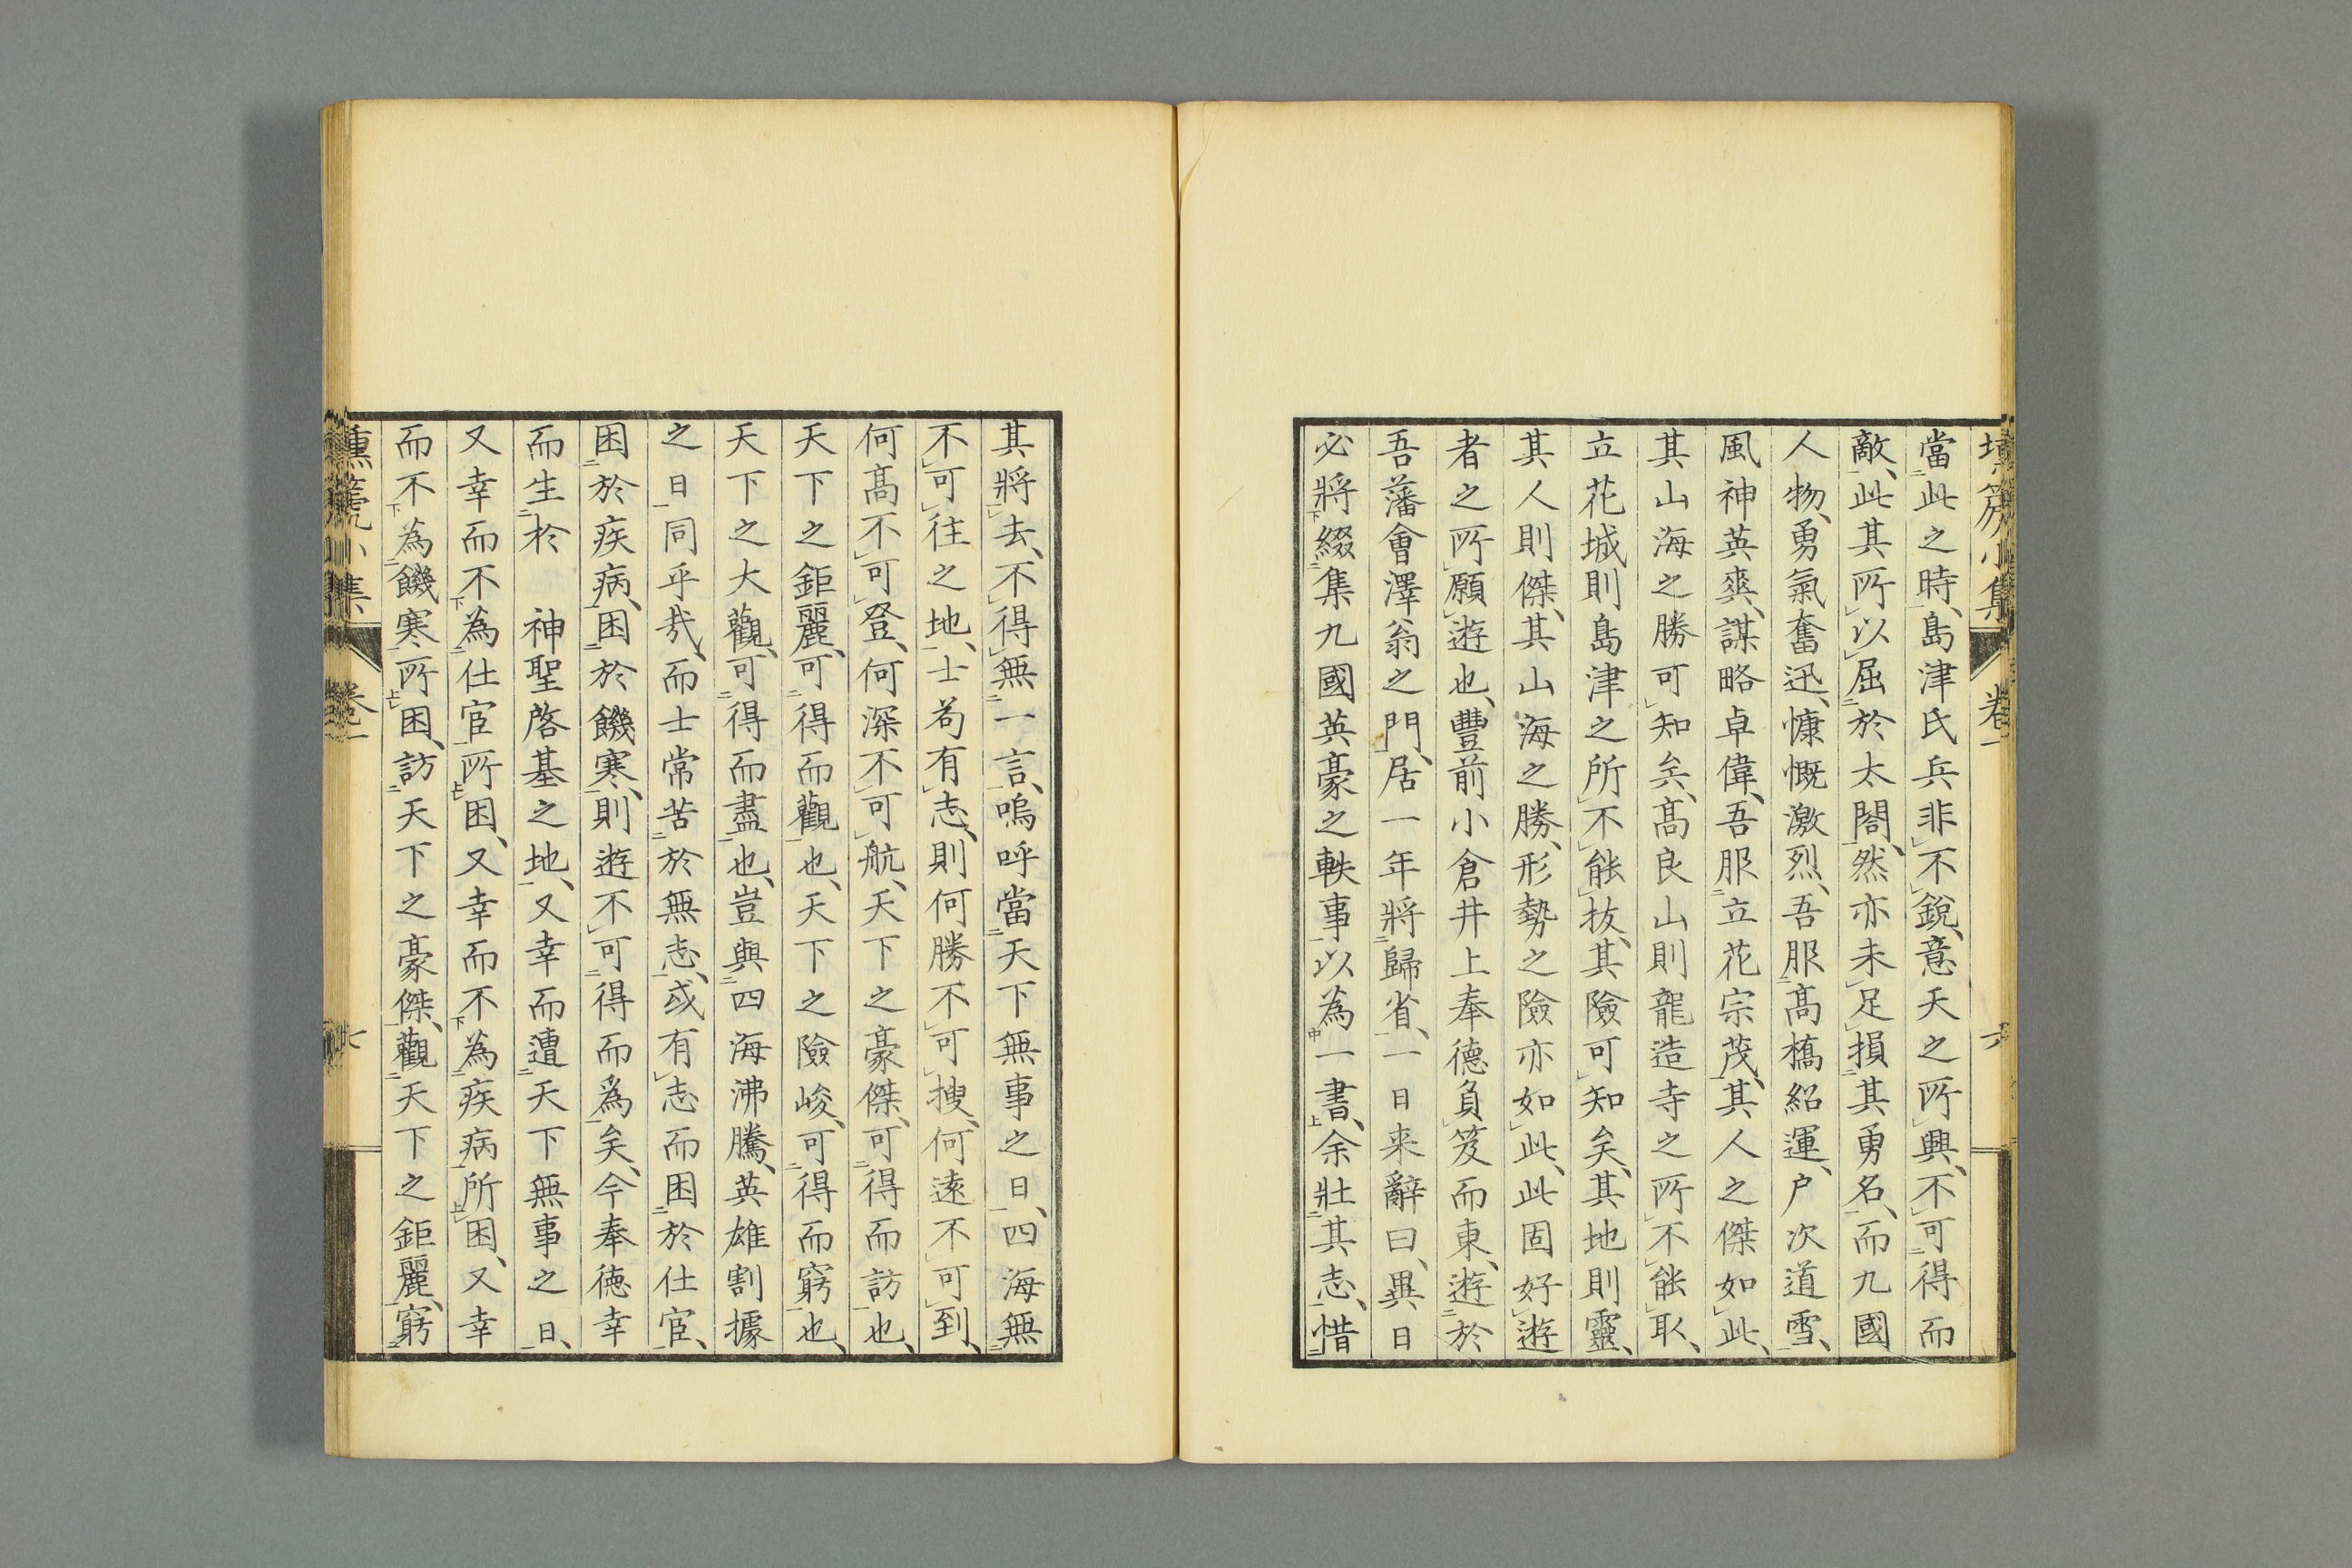 當此之時、島津氏兵非不銳、意天之所興、不可得而
敵、此其所以屈於太閤、然亦未足損其勇名、而九國
人物、勇氣奮迅、慷慨激烈、吾服髙橋紹運、戸次道雪、
風神英爽、謀略卓偉、吾服立花宗茂、其人之傑如此、
其山海之勝可知矣、髙良山則龍造寺之所不能取、
立花城則島津之所不能抜、其險可知矣、其地則靈、
其人則傑、其山海之勝、形勢之險亦如此、此固好遊
者之所願遊也、豐前小倉井上奉德負笈而東、遊於
吾藩會澤翁之門、居一年将歸省、一日来辭曰、異日
必將綴集九國英豪之軼事、以為一書、余壯其志、惜
其將去、不得無一言、嗚呼當天下無事之日、四海無
不可往之地、士苟有志、則何勝不可搜、何遠不可到、
何髙不可登、何深不可航、天下之豪傑、可得而訪也、
天下之鉅麗、可得而觀也、天下之險峻、可得而窮也、
天下之大觀、可得而盡也、豈與四海沸騰、英雄割據
之日同乎㢤、而士常苦於無志、或有志而困於仕宦、
困於疾病、困於饑寒、則遊不可得而爲矣、今奉徳幸
而生於　神聖啓基之地、又幸而遭天下無事之日、
又幸而不為仕宦所困、又幸而不為疾病所困、又幸
而不為饑寒所困、訪天下之豪傑、觀天下之鉅麗、窮
小集　卷一　七